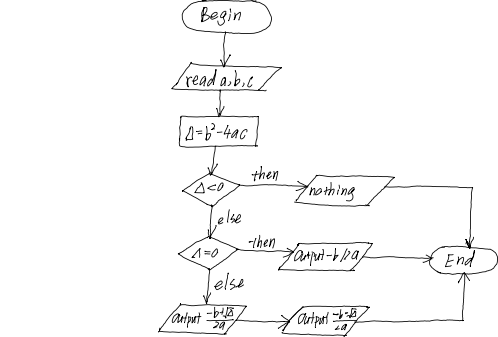 Begin
read a,b,c
Δ=b²-4ac
Δ<0
then
nothing
else
Δ=0
then
output -b/2a
End
else
output (-b+√Δ)/2a
output (-b-√Δ)/2a